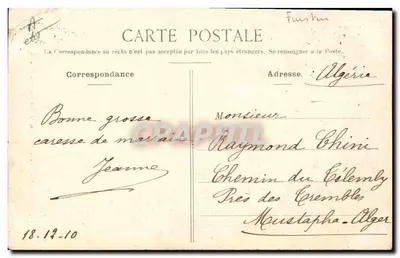 Funster
CARTE POSTALE
La Correspondance au recto n'est pas acceptée par tous les pays étrangers. Se renseigner à la Poste.
Correspondance
Adresse
Algérie
Bonne grosse
caresse de marraine
Jeanne
18-12-10
Monsieur
Raymond Chini
Chemin du Télemly
Près des Trembles
Mustapha-Alger